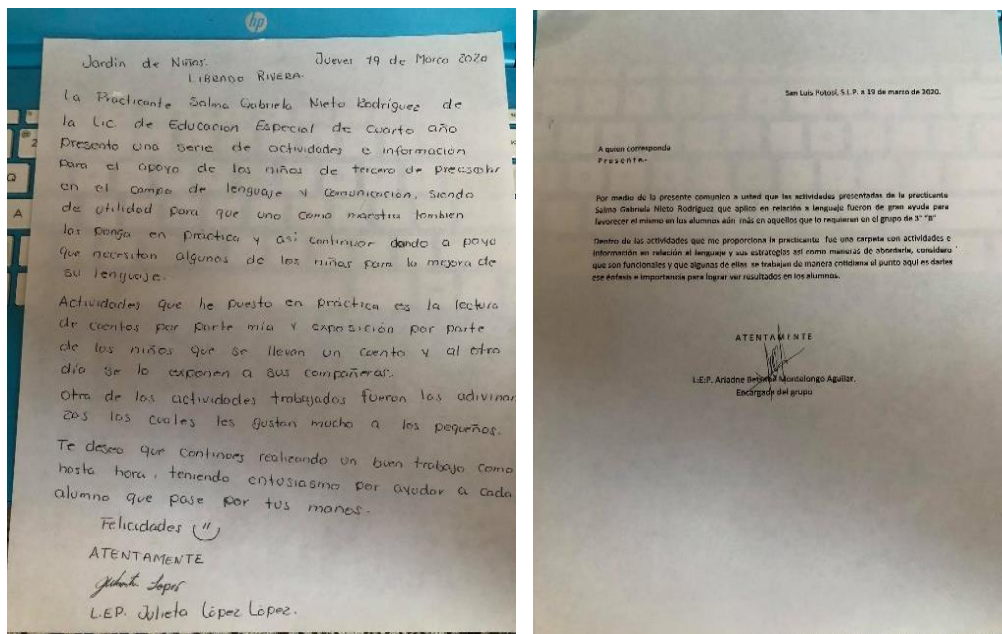 hp
Jardin de Niños. Jueves 19 de Marzo 2020
LIBRADO RIVERA.
La Practicante Salma Gabriela Nieto Rodríguez de
la Lic. de Educacion Especial de cuarto año
presento una serie de actividades e información
para el apoyo de los niños de tercero de preescolar
en el campo de lenguaje y comunicación, siendo
de utilidad para que uno como maestra tambien
las ponga en practica y asi continuar dando a poyo
que necesitan algunos de los niños para la mejora de
su lenguaje.
Actividades que he puesto en práctica es la lectura
de cuentos por parte mía y exposición por parte
de los niños que se llevan un cuento y al otro
día se lo exponen a sus compañeras.
Otra de las actividades trabajados fueron las adivinan
zas las cuales les gustan mucho a los pequeños.
Te deseo que continues realizando un buen trabajo como
hasta hora, teniendo entusiasmo por ayudar a cada
alumno que pase por tus manos.
Felicidades
ATENTAMENTE
Julieta Lopez
L.EP. Julieta López López.
San Luis Potosí, S.L.P. a 19 de marzo de 2020.
A quien corresponda
Presente.-
Por medio de la presente comunico a usted que las actividades presentadas de la practicante
Salma Gabriela Nieto Rodríguez que aplico en relación a lenguaje fueron de gran ayuda para
favorecer el mismo en los alumnos aún más en aquellos que lo requieren en el grupo de 3° "B"
Dentro de las actividades que me proporciona la practicante fue una carpeta con actividades e
información en relación al lenguaje y sus estrategias así como maneras de abordarla, considero
que son funcionales y que algunas de ellas se trabajan de manera cotidiana el punto aquí es darles
ese énfasis e importancia para lograr ver resultados en los alumnos.
ATENTAMENTE
L.E.P. Ariadne Montelongo Aguilar.
Encargada del grupo